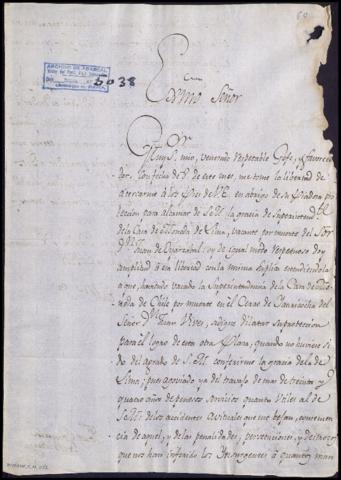 ARCHIVO DE ABASCAL
5038
60
Exmo Señor
Muy S.r mio, venerado respetable Gefe, y favorece-
dor. Con fecha de 8 de este mes, me tome la libertad de
acercarme à los Pies de VE. en abrigo de su Piadosa pro
teccion para alcanzar de S.M. la gracia de Superintend.te
de la Casa de Moneda de Lima, vacante por muerte del Sor
D.n Juan de; oy de igual modo respetuoso doy
amplitud ò en libertad con la misma suplica entendiendola
a que, haviendo vacado la Superintendencia de la Casa de Mo-
neda de Chile por muerte en el Cerro de
Señor D.n Juan, se digne dilatar su proteccion
para el logro de esta otra Plaza, quando no huviere si
do del agrado de S.M. conferirme la gracia de la de
Lima; pues agoviado ya del travajo de mas de treinta y
quatro años de penosos servicios quanto utiles al de
S.M. de los accidentes avituales que me, consequen-
cia de aquel, y de las penalidades, persecuciones, y destrozos
que nos han inferido los Insurgentes à quantos man